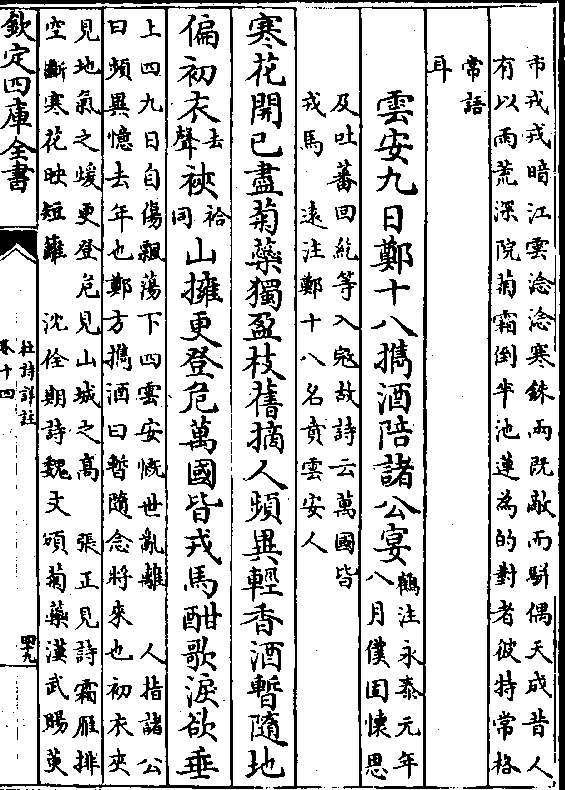 市戎戎暗江雲淰淰寒銖兩既敵而駢偶天成昔人
有以雨荒深院菊霜倒半池蓮為的對者彼持常格
常語
耳
雲安九日鄭十八攜酒陪諸公宴
鶴注永泰元年
八月僕固懷恩
及吐蕃回紇等入宼故詩云萬國皆
戎馬 遠注鄭十八名賁雲安人
寒花開已盡菊蘂獨盈枝舊摘人頻異輕香酒暫隨地
偏初衣去聲裌袷同山擁更登危萬國皆戎馬酣歌淚欲垂
上四九日自傷飄蕩下四雲安慨世亂離 人指諸公
曰頻異憶去年也鄭方攜酒曰暫隨念將來也初衣夾
見地氣之煖更登危見山城之高 張正見詩霜雁排
空斷寒花映短籬 沈佺期詩魏文頌菊蘂漢武賜萸
欽定四庫全書
杜詩詳註
卷十四
四九